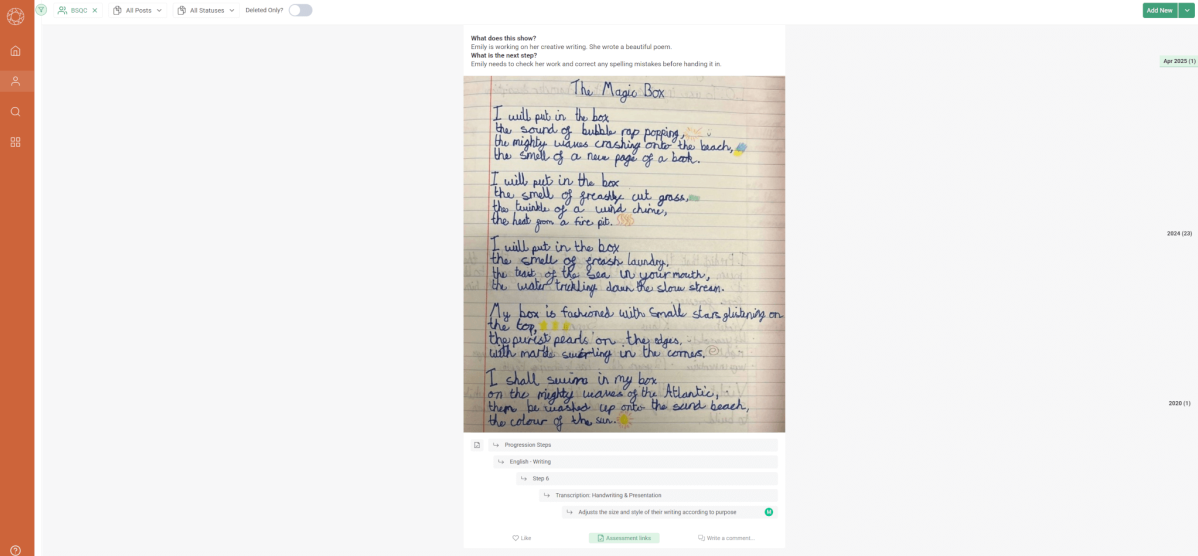 BSQC
All Posts
All Statuses
Deleted Only?
Add New
What does this show?
Emily is working on her creative writing. She wrote a beautiful poem.
What is the next step?
Emily needs to check her work and correct any spelling mistakes before handing it in.
The Magic Box
I will put in the box
the sound of bubble rap popping,
the mighty waves crashing onto the beach,
the smell of a new page of a book.
I will put in the box
the smell of greashly cut grass,
the twinkle of a wind chime,
the heat from a fire pit.
I will put in the box
the smell of greash laundry,
the tast of the Sea in your mouth,
the water trickling down the slow stream.
My box is fashioned with small stars glistening on
the top,
the purest pearls on the edges,
with swirling in the corners.
I shall swim in my box
on the mighty waves of the Atlantic,
them be washed up onto the sand beach,
the colour of the sun.
Progression Steps
English - Writing
Step 6
Transcription: Handwriting & Presentation
Adjusts the size and style of their writing according to purpose
Like
Assessment links
Write a comment...
Apr 2025 (1)
2024 (23)
2020 (1)